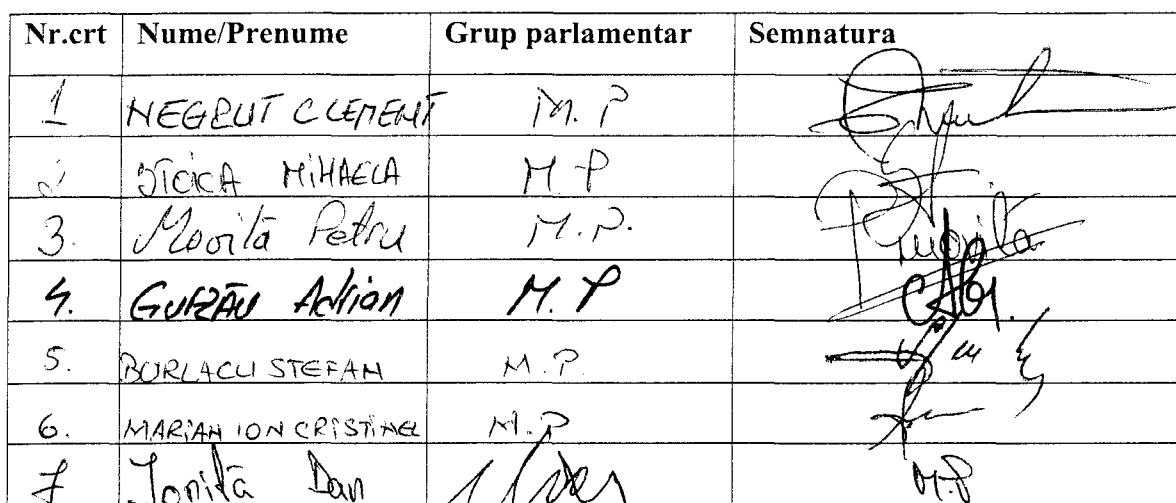 Nr.crt Nume/Prenume Grup parlamentar Semnatura
1 NEGRUT CLEMENT M.P
2 STOICA MIHAELA M.P
3. Movilă Petru M.P.
4. GURZĂU Adrian M.P
5. BURLACU STEFAN M.P.
6. MARIAN ION CRISTINEL M.P
7 Ioniță Dan M.P